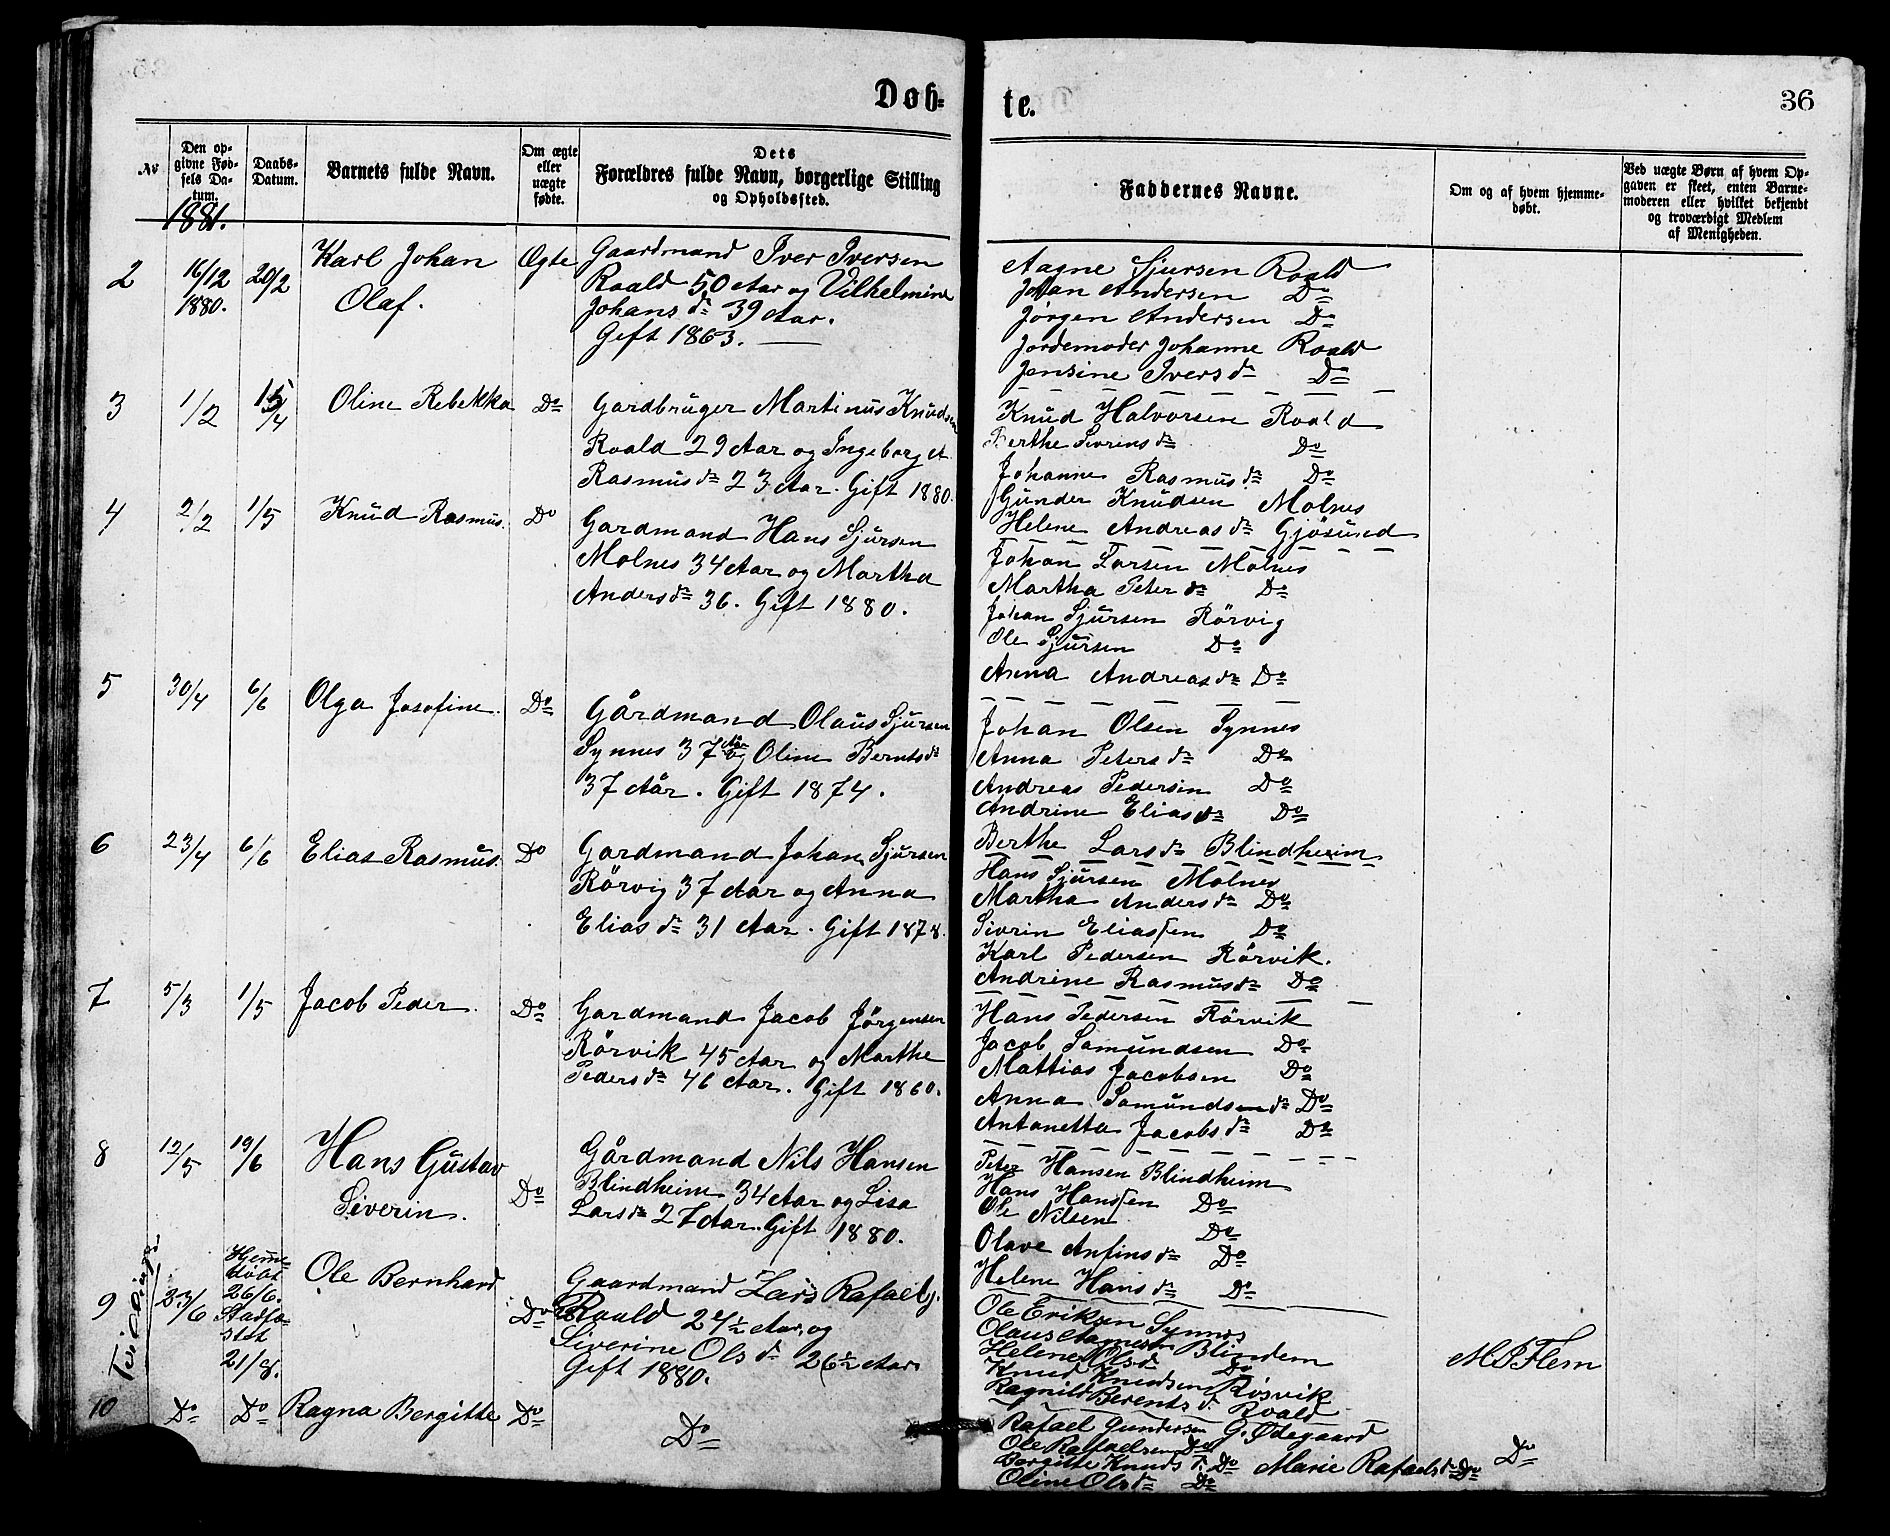 Døb-
te.
36
No
Den op-
givne Fød-
sels Da-
tum.
Daabs-
Datum.
Barnets fulde Navn.
Om ægte
eller
uægte
fødte.
Dets
Forældres fulde Navn, borgerlige Stilling
og Opholdssted.
Faddernes Navne.
Om og af hvem hjemme-
døbt.
Ved uægte Børn af hvem Op-
gaven er skeet, enten Barne-
moderen eller hvilket bekjendt
og troværdigt Medlem
af Menigheden.
1881.
2
16/12
1880.
20/2
Karl Johan
Olaf.
Ægte
Gaardmand Iver Iversen
Roald 50 Aar og Vilhelmine
Johans dr 39 Aar.
Gift 1863.
Aagne Sjursen Roald
Johan Andersen Do
Jørgen Andersen Do
Jordemoder Johanne Roald
Jensine Ivers dr Do
3
1/2
15/4
Oline Rebekka
Do
Gardbruger Martinus Knudsen
Roald 29 Aar og Ingeborg A.
Rasmus dr 23 Aar. Gift 1880.
Knud Halvorsen Roald
Berthe Sivrins dr Do
Johanne Rasmus dr Do
Gunder Knudsen Molnes
Helene Andreas dr Gjøsund
4
2/2
1/5
Knud Rasmus.
Do
Gardmand Hans Sjursen
Molnes 34 Aar og Martha
Anders dr 36. Gift 1880.
Johan Larsen Molnes
Martha Peter dr Do
Johan Sjursen Rörvig
Ole Sjursen Do
Anna Andreas dr Do
5
30/4
6/6
Olga Josefine.
Do
Gårdmand Olaus Sjursen
Synnes 37 Aar og Oline Bernts dr
37 Aår. Gift 1874.
Johan Olsen Synnes
Anna Peters dr Do
Andreas Pedersen Do
Andrine Elias dr Do
Berthe Lars dr Blindheim
6
23/4
6/6
Elias Rasmus.
Do
Gardmand Johan Sjursen
Rörvig 37 Aar og Anna
Elias dr 31 Aar. Gift 1878.
Hans Sjursen Molnes
Martha Anders dr Do
Sivrin Eliassen Do
Karl Pedersen Rörvik.
Andrine Rasmus dr Do
7
5/3
1/5
Jacob Peder.
Do
Gardmand Jacob Jörgensen
Rörvik 45 Aar og Marthe
Peders dr 46 Aar. Gift 1860.
Hans Pedersen Rörvik
Jacob Samundsen Do
Mattias Jacobsen Do
Anna Samunds dr Do
Antonetta Jacobs dr Do
8
12/5
19/6
Hans Gustav
Siverin.
Do
Gårdmand Nils Hansen
Blindheim 34 Aar og Lisa
Lars dr 27 Aar. Gift 1880.
Peter Hansen Blindheim
Hans Hanssen Do
Ole Nilsen Do
Olave Anfins dr Do
Helene Hans dr Do
9
Tvillinge
23/6
Hjemme-
døbt
26/6.
Stadfæ-
stet
21/8.
Ole Bernhard
Do
Gaardmand Lars Rafaels.
Roald 24½ Aar, og
Siverine Ols dr 26½ Aar.
Gift 1880.
Ole Eriksen Synnes
Olaus Aagnesen Blindem
Helene Ols dr Do
Knud Knudsen Røsvik
Ragnild Berents dr Roald
M S Flem
10
Do
Do
Ragna Bergitte
Do
Do
Rafael Gundersen G. Ødegaard
Ole Rafaelsen Do
Bergitte Knuds dr. Do Marie Rafaels dr Do
Oline Ols dr Do
Do